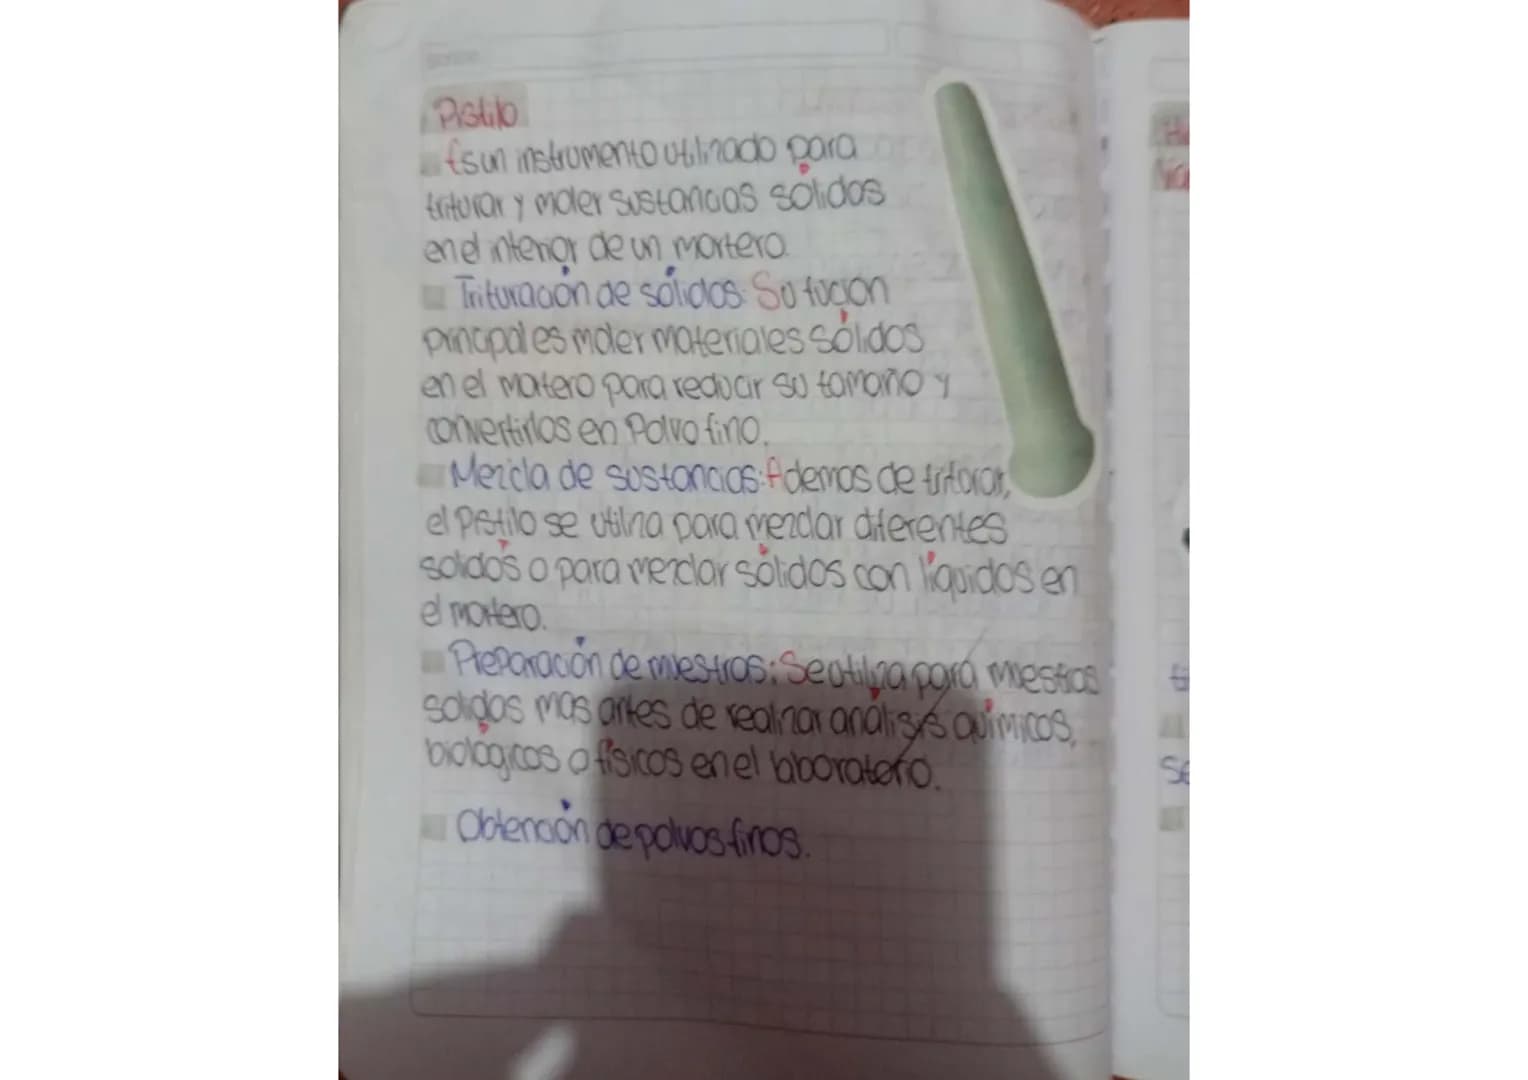 Pistilo
Es un instrumento utilizado para
triturar y moler sustancias sólidas
en el interior de un mortero.
Trituración de sólidos: Su fución
principal es moler materiales sólidos
en el mortero para reducir su tamaño y
convertirlos en Polvo fino.
Mezcla de sustancias: Ademas de triturar,
el pistilo se utiliza para mezclar diferentes
solidos o para mezclar sólidos con líquidos en
el mortero.
Preparación de muestras: Se utiliza para muestras
solidas mas antes de realizar análisis químicos,
biológicos o físicos en el laboratorio.
Obtención de polvos finos.